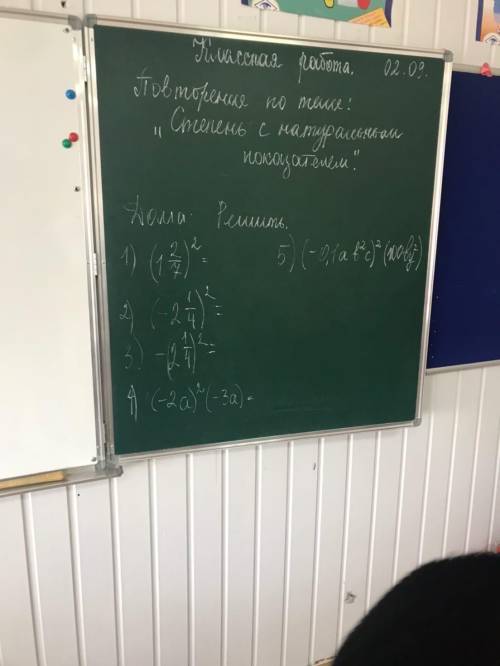 Классная работа. 02.09.
Повторение по теме:
„Степень с натуральным
показателем".
Дома: Решить.
1) (1 2/7)² =
5) (-0,1ab²c)² (100by²)
2) (-2 1/4)² =
3) -(2 1/4)² =
4) (-2a)² (-3a) =